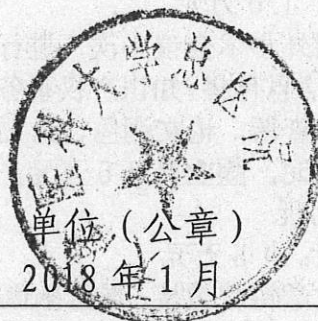 医科大学总医院
单位（公章）
2018年1月